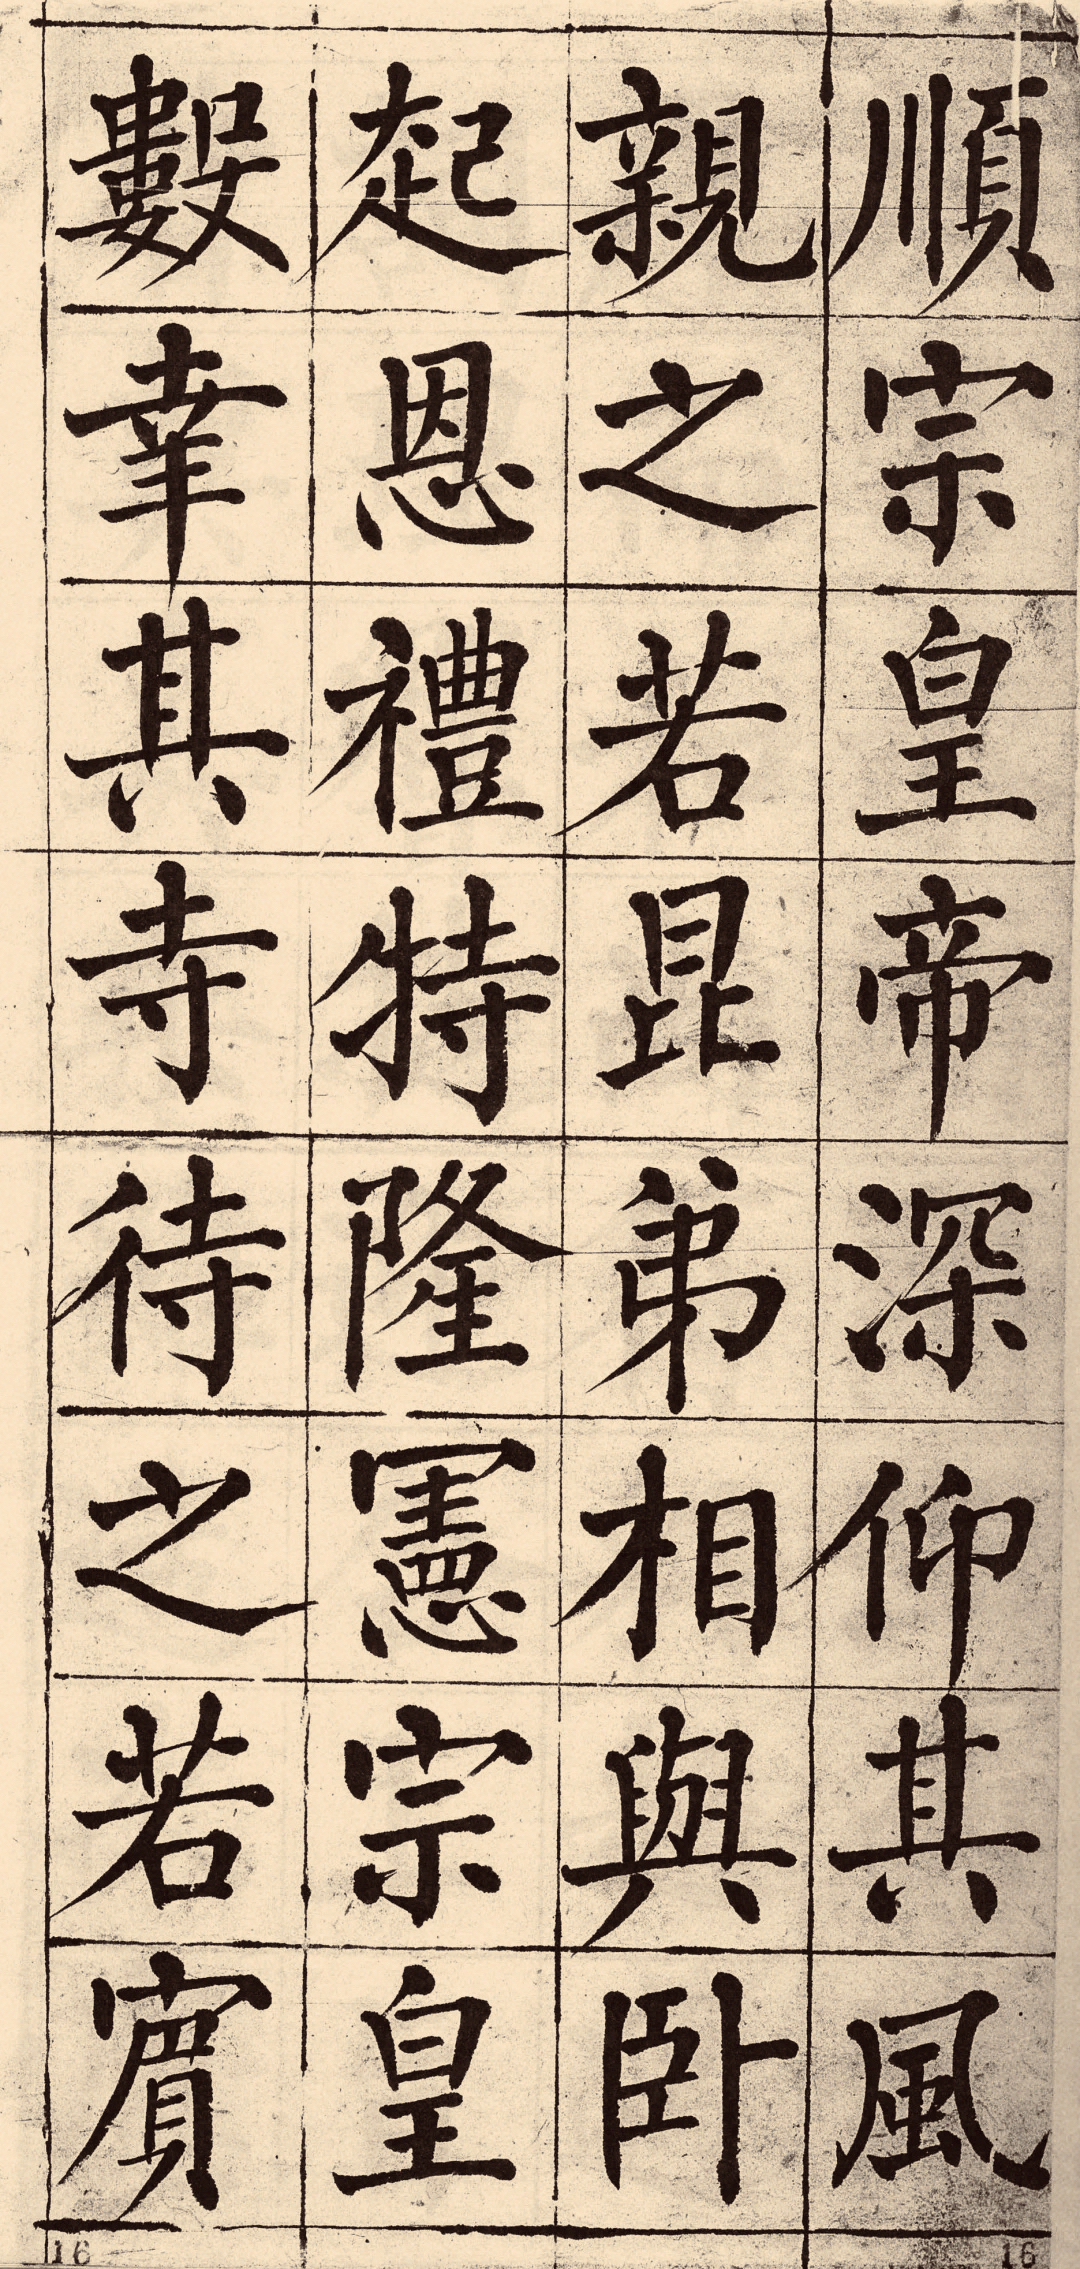 順宗皇帝深仰其風
親之若昆弟相與臥
起恩禮特隆憲宗皇
數幸其寺待之若賓
16
16